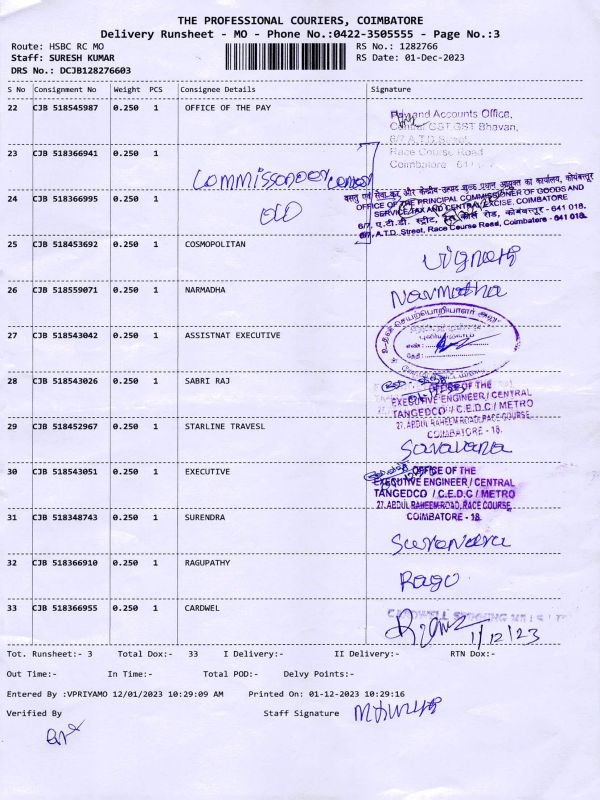 THE PROFESSIONAL COURIERS, COIMBATORE
Delivery Runsheet - MO - Phone No.:0422-3505555 - Page No.:3
Route: HSBC RC MO
RS No.: 1282766
Staff: SURESH KUMAR
RS Date: 01-Dec-2023
DRS No.: DCJB128276603
S No Consignment No Weight PCS Consignee Details Signature
22 CJB 518545987 0.250 1 OFFICE OF THE PAY
Pay and Accounts Office,
Central GST Bhavan,
6/7 A.T.D. Street
Race Course Road
Coimbatore
23 CJB 518366941 0.250 1
24 CJB 518366995 0.250 1
वस्तु एवं सेवा कर और केन्द्रीय उत्पाद शुल्क प्रधान आयुक्त का कार्यालय, कोयंबत्तूर
OFFICE OF THE PRINCIPAL COMMISSIONER OF GOODS AND
SERVICE TAX AND CENTRAL EXCISE, COIMBATORE
6/7, ए.टी.डी. स्ट्रीट, रेस कोर्स रोड, कोयंबत्तूर - 641 018.
6/7, A.T.D. Street, Race Course Road, Coimbatore - 641 018.
25 CJB 518453692 0.250 1 COSMOPOLITAN
26 CJB 518559071 0.250 1 NARMADHA
Narmadha
27 CJB 518543042 0.250 1 ASSISTNAT EXECUTIVE
28 CJB 518543026 0.250 1 SABRI RAJ
OFFICE OF THE
EXECUTIVE ENGINEER / CENTRAL
TANGEDCO / C.E.D.C / METRO
27, ABDUL RAHEEM ROAD, RACE COURSE
COIMBATORE - 18.
29 CJB 518452967 0.250 1 STARLINE TRAVESL
Saravana
30 CJB 518543051 0.250 1 EXECUTIVE
OFFICE OF THE
EXECUTIVE ENGINEER / CENTRAL
TANGEDCO / C.E.D.C / METRO
27, ABDUL RAHEEM ROAD, RACE COURSE,
COIMBATORE - 18.
31 CJB 518348743 0.250 1 SURENDRA
Surendra
32 CJB 518366910 0.250 1 RAGUPATHY
Ragu
33 CJB 518366955 0.250 1 CARDWEL
1/12/23
Tot. Runsheet:- 3 Total Dox:- 33 I Delivery:- II Delivery:- RTN Dox:-
Out Time:- In Time:- Total POD:- Delvy Points:-
Entered By :VPRIYAMO 12/01/2023 10:29:09 AM Printed On: 01-12-2023 10:29:16
Verified By Staff Signature